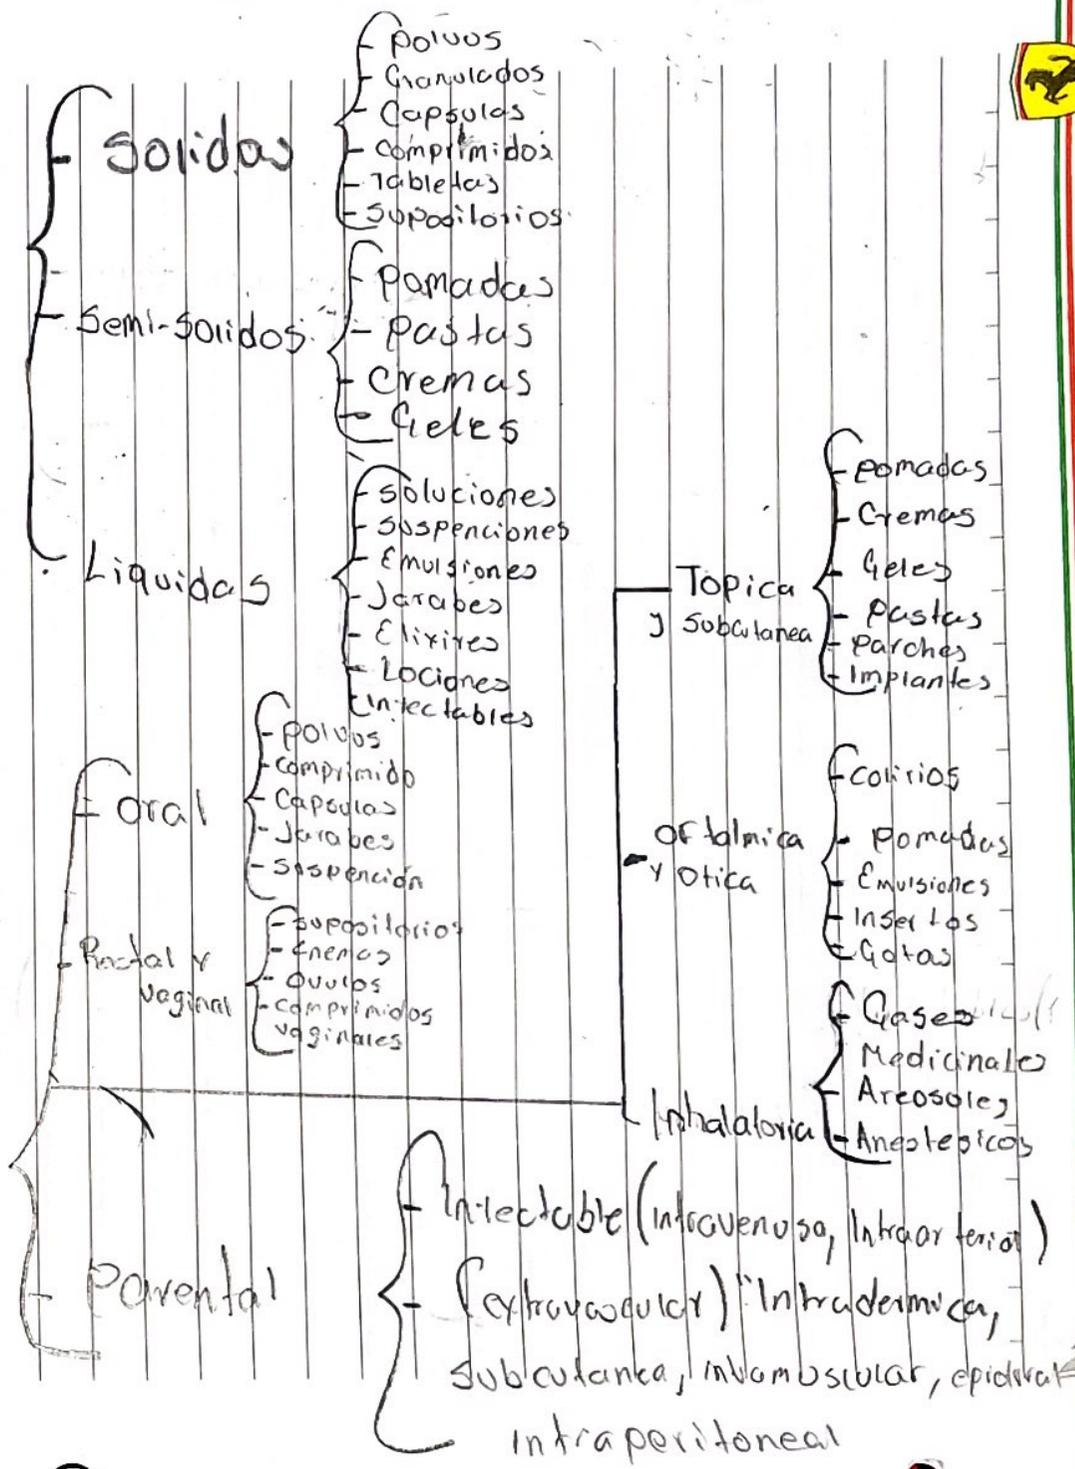 Solidas
Polvos
Granulados
Capsulas
Comprimidos
Tabletas
Supositorios
Semi-Solidos
Pomadas
Pastas
Cremas
Geles
Liquidas
Soluciones
Suspenciones
Emulsiones
Jarabes
Elixires
Lociones
Inyectables
Oral
Polvos
Comprimido
Capsulas
Jarabes
Suspención
Rectal y
vaginal
Supositorios
Enemas
Ovulos
Comprimidos
vaginales
Topica
y subcutanea
Pomadas
Cremas
Geles
Pastas
Parches
Implantes
Oftalmica
y Otica
Colirios
Pomadas
Emulsiones
Insertos
Gotas
Inhalatoria
Gases
Medicinales
Areosoles
Anestesicos
Parental
Inyectable (intravenosa, Intraarterial)
(extravascular) "Intradermica,
subcutanea, intramuscular, epidural
intraperitoneal